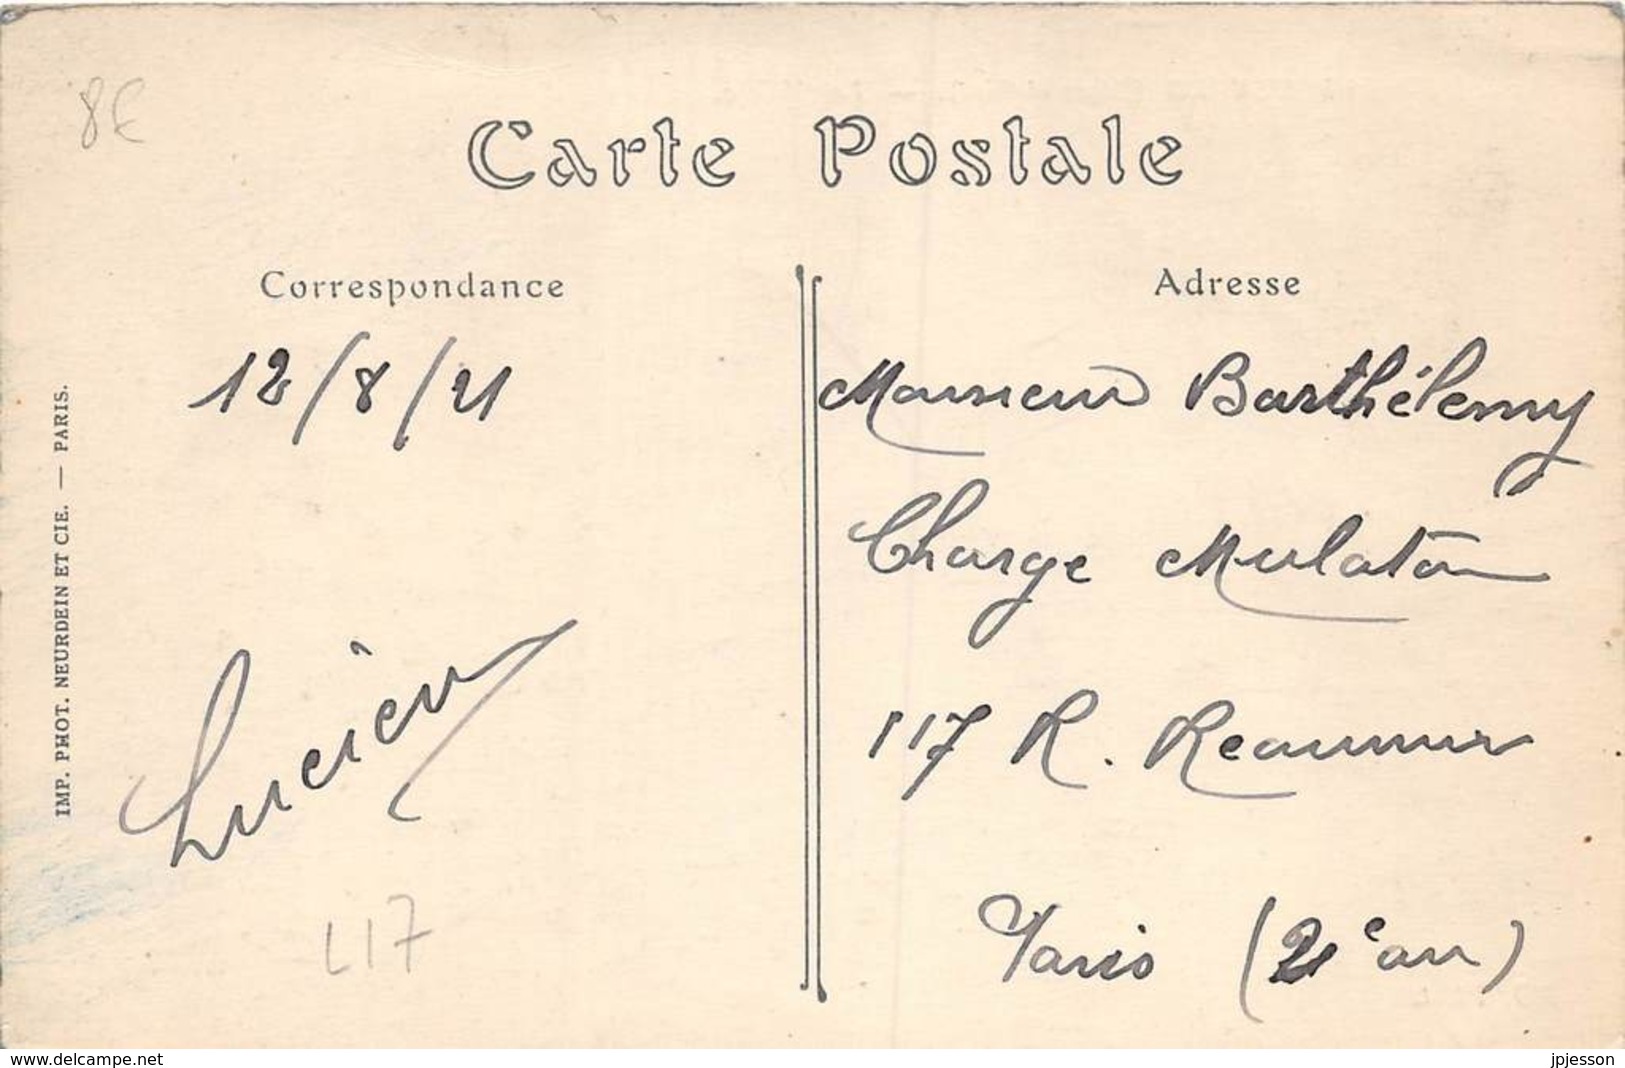 8€
Carte Postale
Correspondance
Adresse
12/8/21
Lucien
L17
IMP. PHOT. NEURDEIN ET CIE. — PARIS.
Monsieur Barthélemy
Charge Mulaton
117 R. Reaumur
Paris (2e arr)
www.delcampe.net
jpjesson